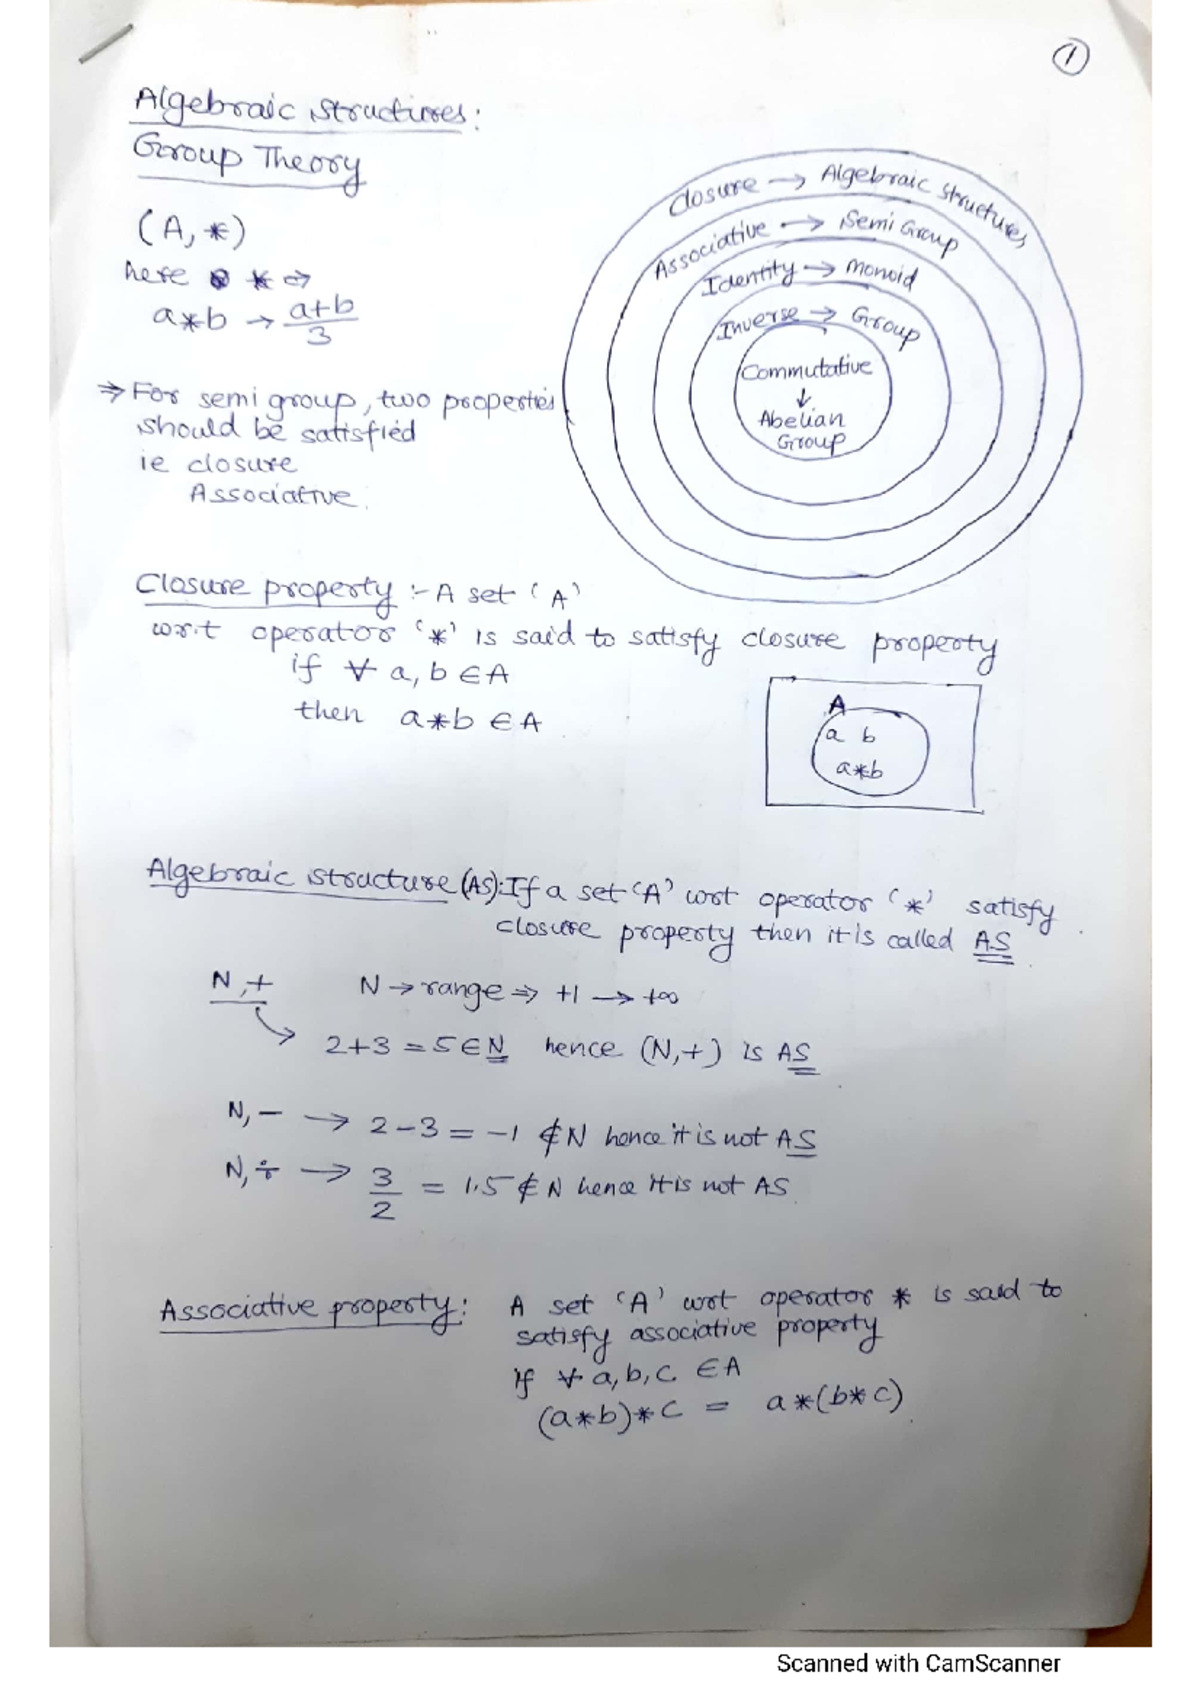 1
Algebraic structures:
Group Theory
(A, *)
here * ⇒
a*b → a+b
3
⇒ For semi group, two properties
should be satisfied
ie closure
Associative.
Closure → Algebraic structures
Associative → Semi Group
Identity → monoid
Inverse → Group
Commutative
↓
Abelian
Group
Closure property :- A set 'A'
w.r.t operator '*' is said to satisfy closure property
if ∀ a, b ∈ A
then a*b ∈ A
A
a b
a*b
Algebraic structure (AS): If a set 'A' wrt operator '*' satisfy
closure property then it is called AS.
N, + N → range ⇒ +1 → +∞
2+3 = 5 ∈ N hence (N,+) is AS
N, − → 2−3 = −1 ∉ N hence it is not AS
N, ÷ → 3/2 = 1.5 ∉ N hence it is not AS
Associative property: A set 'A' wrt operator * is said to
satisfy associative property
if ∀ a, b, c ∈ A
(a*b)*c = a*(b*c)
Scanned with CamScanner